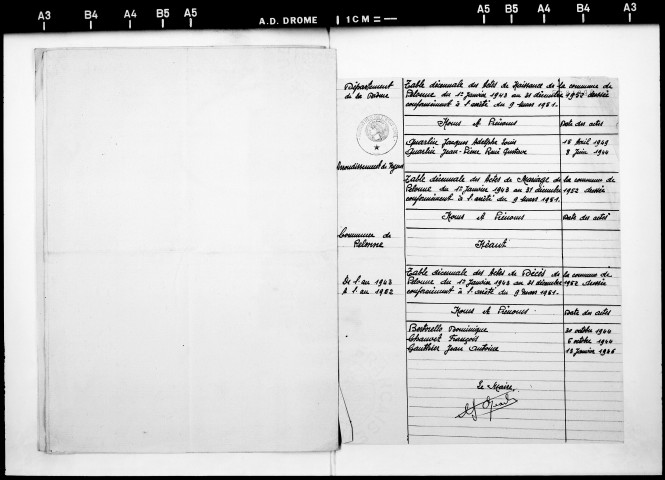 A3 B4 A4 B5 A5 A.D. DROME 1CM A5 B5 A4 B4 A3
Département
de la Drôme
Arrondissement de Nyons
Commune de
Pelonne
De l'an 1943
A l'an 1952
Table décennale des Actes de Naissance de la commune de
Pelonne du 1er Janvier 1943 au 31 décembre 1952 dressée
conformément à l'arrêté du 9 Mars 1951.
Noms et Prénoms Date des actes
Quarlin Jacques Adolphe Louis 18 Avril 1949
Quarlin Jean-Pierre René Gustave 8 Juin 1944
Table décennale des Actes de Mariage de la commune de
Pelonne du 1er Janvier 1943 au 31 décembre 1952 dressée
conformément à l'arrêté du 9 Mars 1951.
Noms et Prénoms Date des actes
Néant
Table décennale des Actes de Décès de la commune de
Pelonne du 1er Janvier 1943 au 31 décembre 1952 dressée
conformément à l'arrêté du 9 Mars 1951.
Noms et Prénoms Date des actes
Bertorello Dominique 20 octobre 1944
Chauvet François 6 octobre 1944
Gauthier Jean Antoine 13 Janvier 1946
Le Maire,